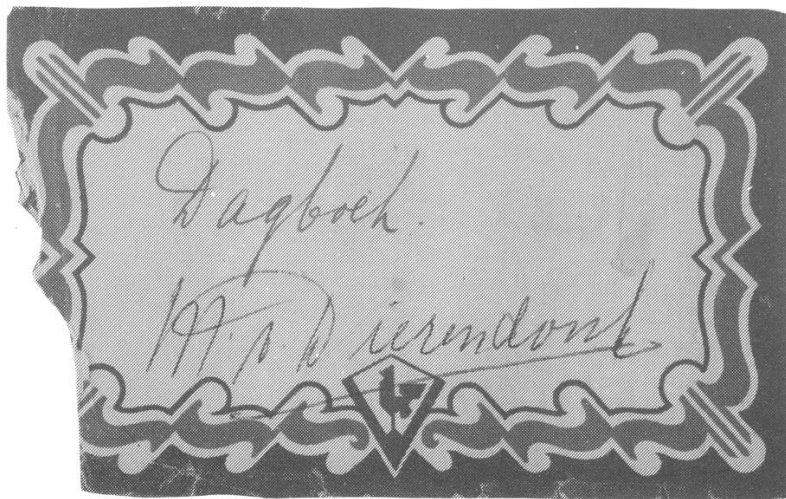 Dagboek.
M. v. Dierendonk